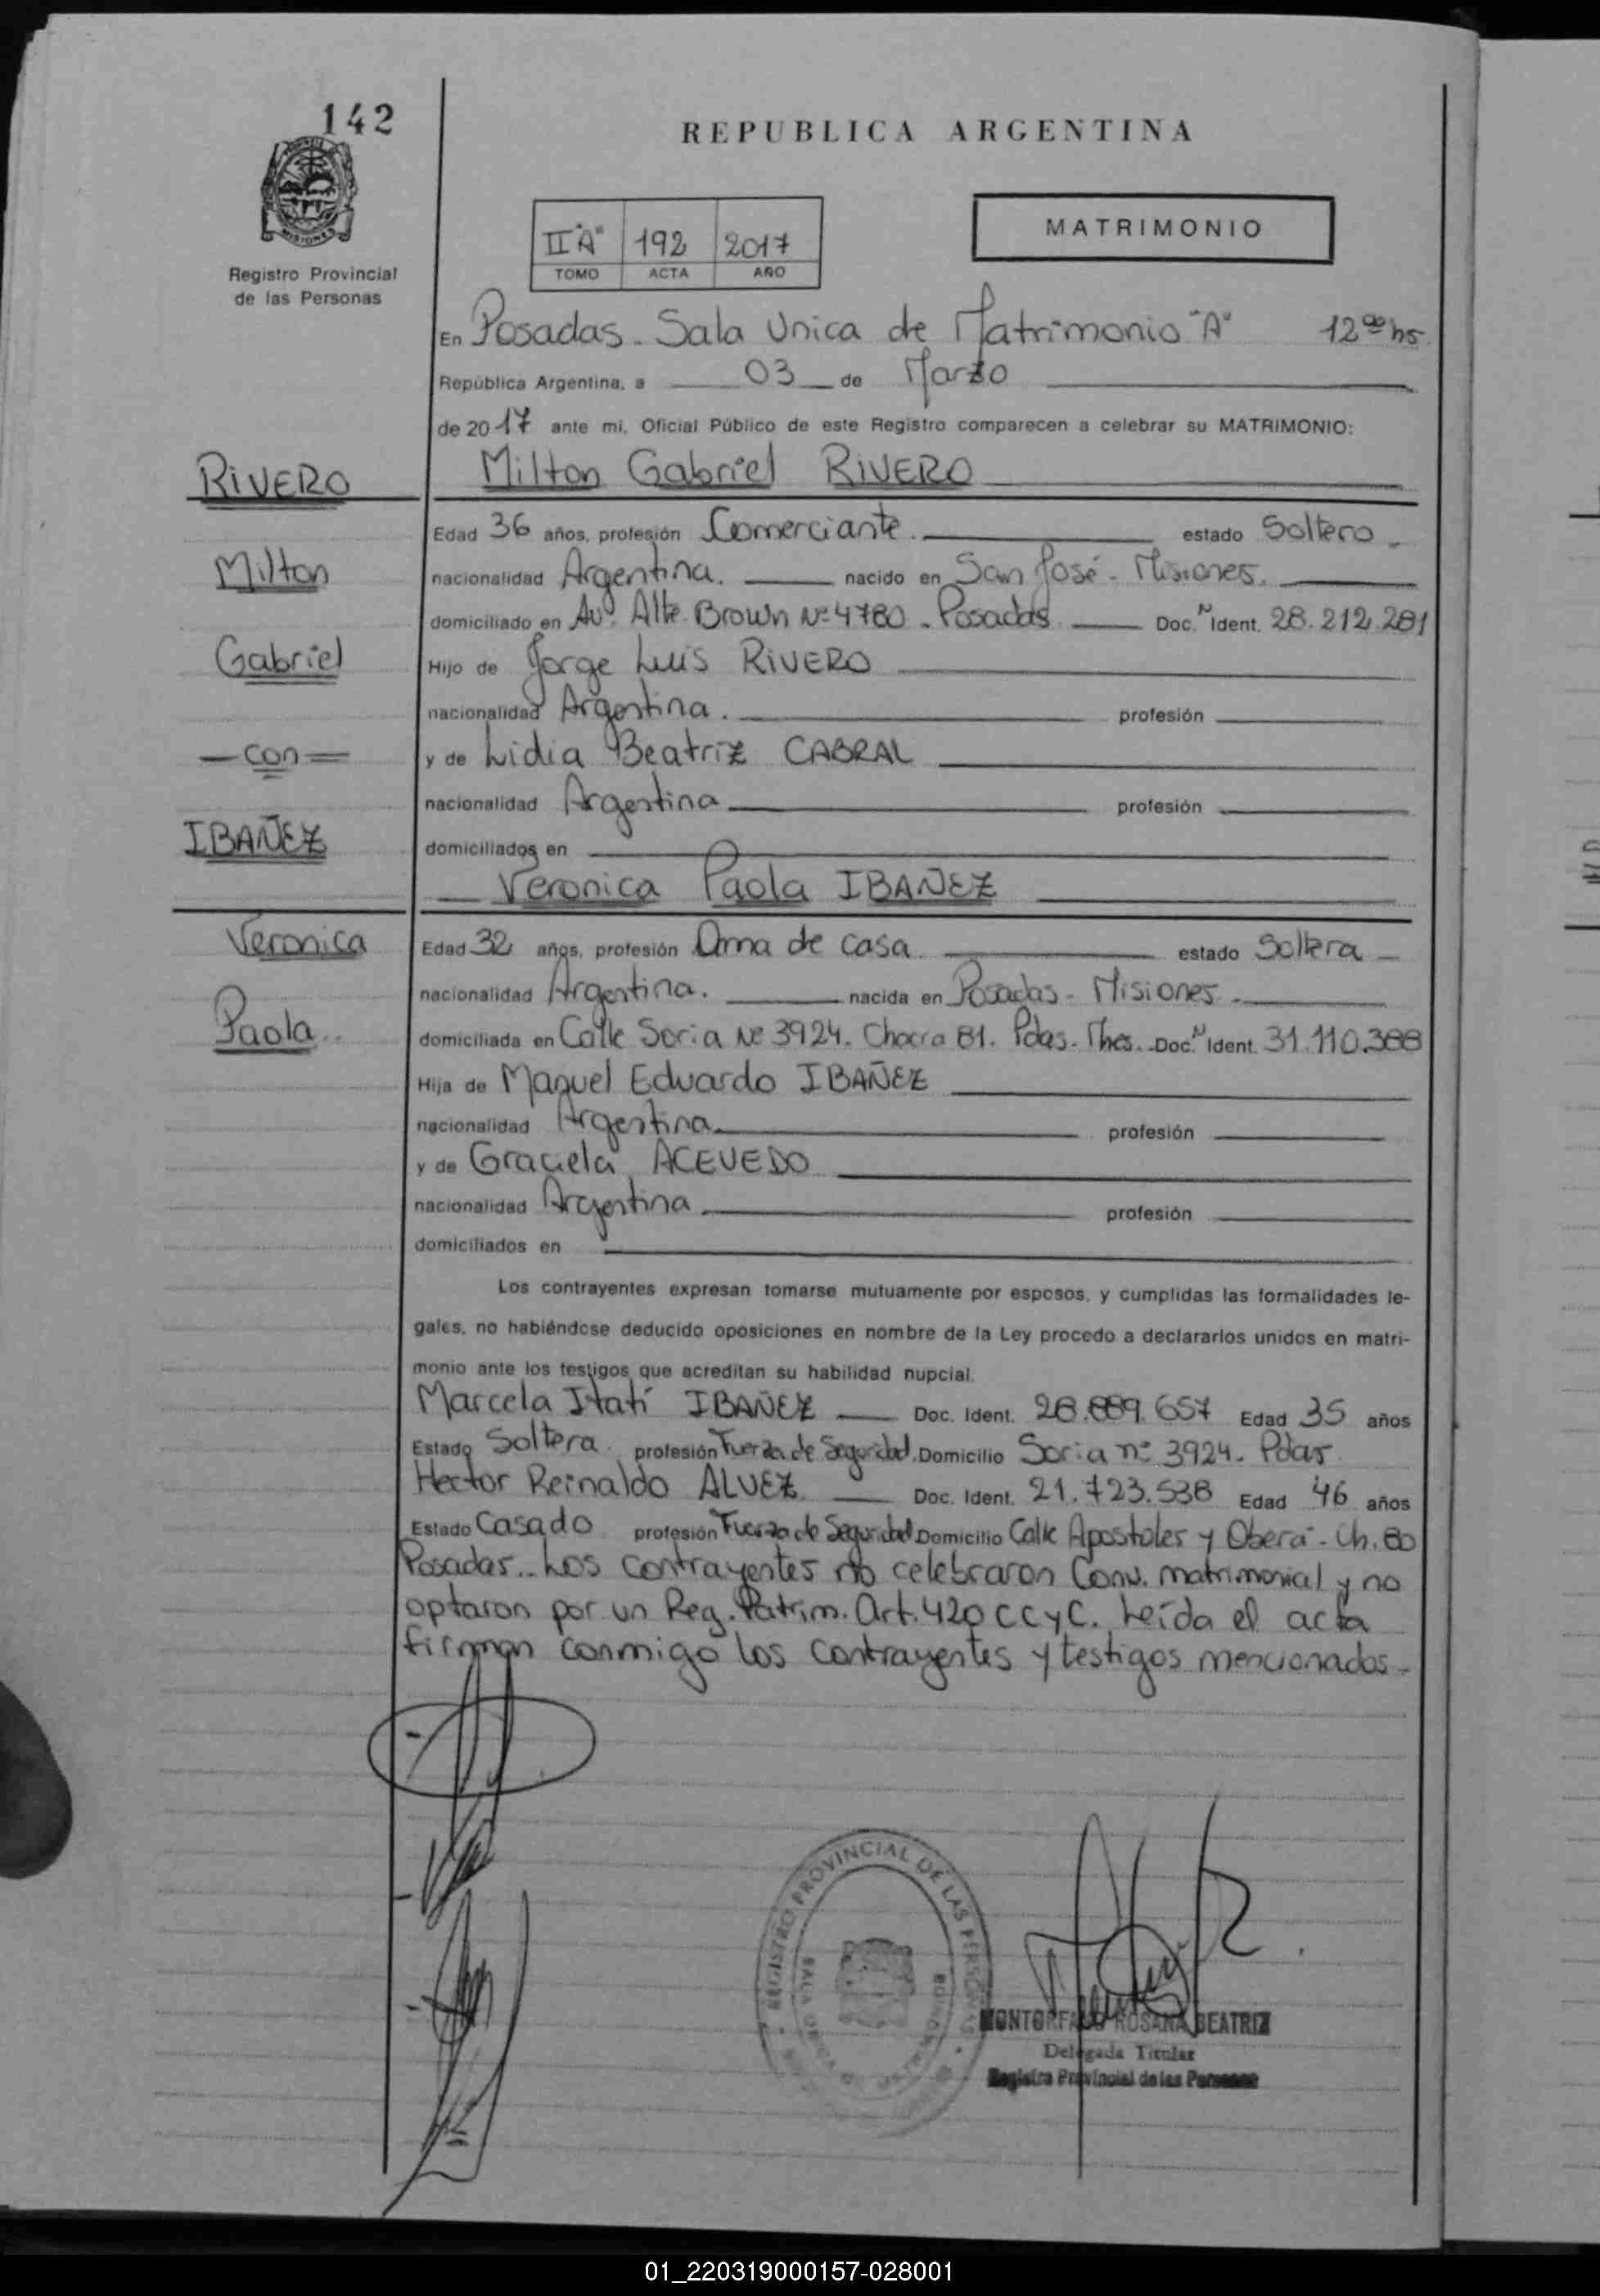 142
REPUBLICA ARGENTINA
MISIONES
Registro Provincial
de las Personas
II "A" 192 2017
TOMO ACTA AÑO
MATRIMONIO
En Posadas. Sala Unica de Matrimonio "A" 12 00 hs.
República Argentina, a 03 de Marzo
de 2017 ante mí, Oficial Público de este Registro comparecen a celebrar su MATRIMONIO:
RIVERO
Milton Gabriel RIVERO
Edad 36 años, profesión Comerciante. estado Soltero
Milton
nacionalidad Argentina. nacido en San José - Misiones.
domiciliado en Av. Alte. Brown Nº 4780 - Posadas Doc. N Ident. 28.212.281
Gabriel
Hijo de Jorge Luis RIVERO
nacionalidad Argentina. profesión
con
y de Lidia Beatriz CABRAL
nacionalidad Argentina profesión
IBAÑEZ
domiciliados en
Veronica Paola IBAÑEZ
Veronica
Edad 32 años, profesión Ama de casa. estado Soltera
nacionalidad Argentina. nacida en Posadas - Misiones.
Paola
domiciliada en Calle Soria Nº 3924. Chacra 81. Pdas. Mnes. Doc. N Ident. 31.110.388
Hija de Manuel Eduardo IBAÑEZ
nacionalidad Argentina profesión
y de Graciela ACEVEDO
nacionalidad Argentina profesión
domiciliados en
Los contrayentes expresan tomarse mutuamente por esposos, y cumplidas las formalidades le-
gales, no habiéndose deducido oposiciones en nombre de la Ley procedo a declararlos unidos en matri-
monio ante los testigos que acreditan su habilidad nupcial.
Marcela Itatí IBAÑEZ Doc. Ident. 28.889.657 Edad 35 años
Estado Soltera. profesión Fuerza de Seguridad. Domicilio Soria nº 3924. Pdas
Hector Reinaldo ALVEZ Doc. Ident. 21.723.538 Edad 46 años
Estado Casado profesión Fuerza de Seguridad Domicilio Calle Apostoles y Obera - Ch. 80
Posadas.. Los contrayentes no celebraron Conv. matrimonial y no
optaron por un Reg. Patrim. Art. 420 CCyC. Leída el acta
firman conmigo los contrayentes y testigos mencionados.-
REGISTRO PROVINCIAL DE LAS PERSONAS
ROSANA BEATRIZ
Delegada Titular
Registro Provincial de las Personas
01_220319000157-028001